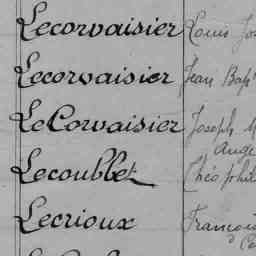 Lecorvaisier Louis Jos
Lecorvaisier Jean Bapt
LeCorvaisier Joseph M
Ange
Lecoublet Théophil
Lecrioux François